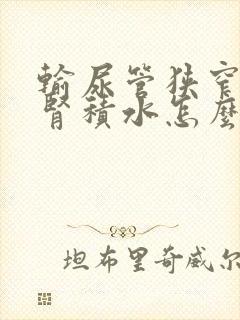 輸尿管狹窄
腎積水怎麼
坦布里奇威尔